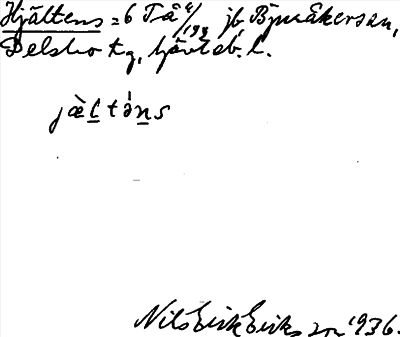 Hjältens = 6 Tå 4/198 jb Bjuråkers sn,
Delsbo tg, Gävleb. l.
jæ̀ltə̀ns
Nils Erik Eriksson 1936.